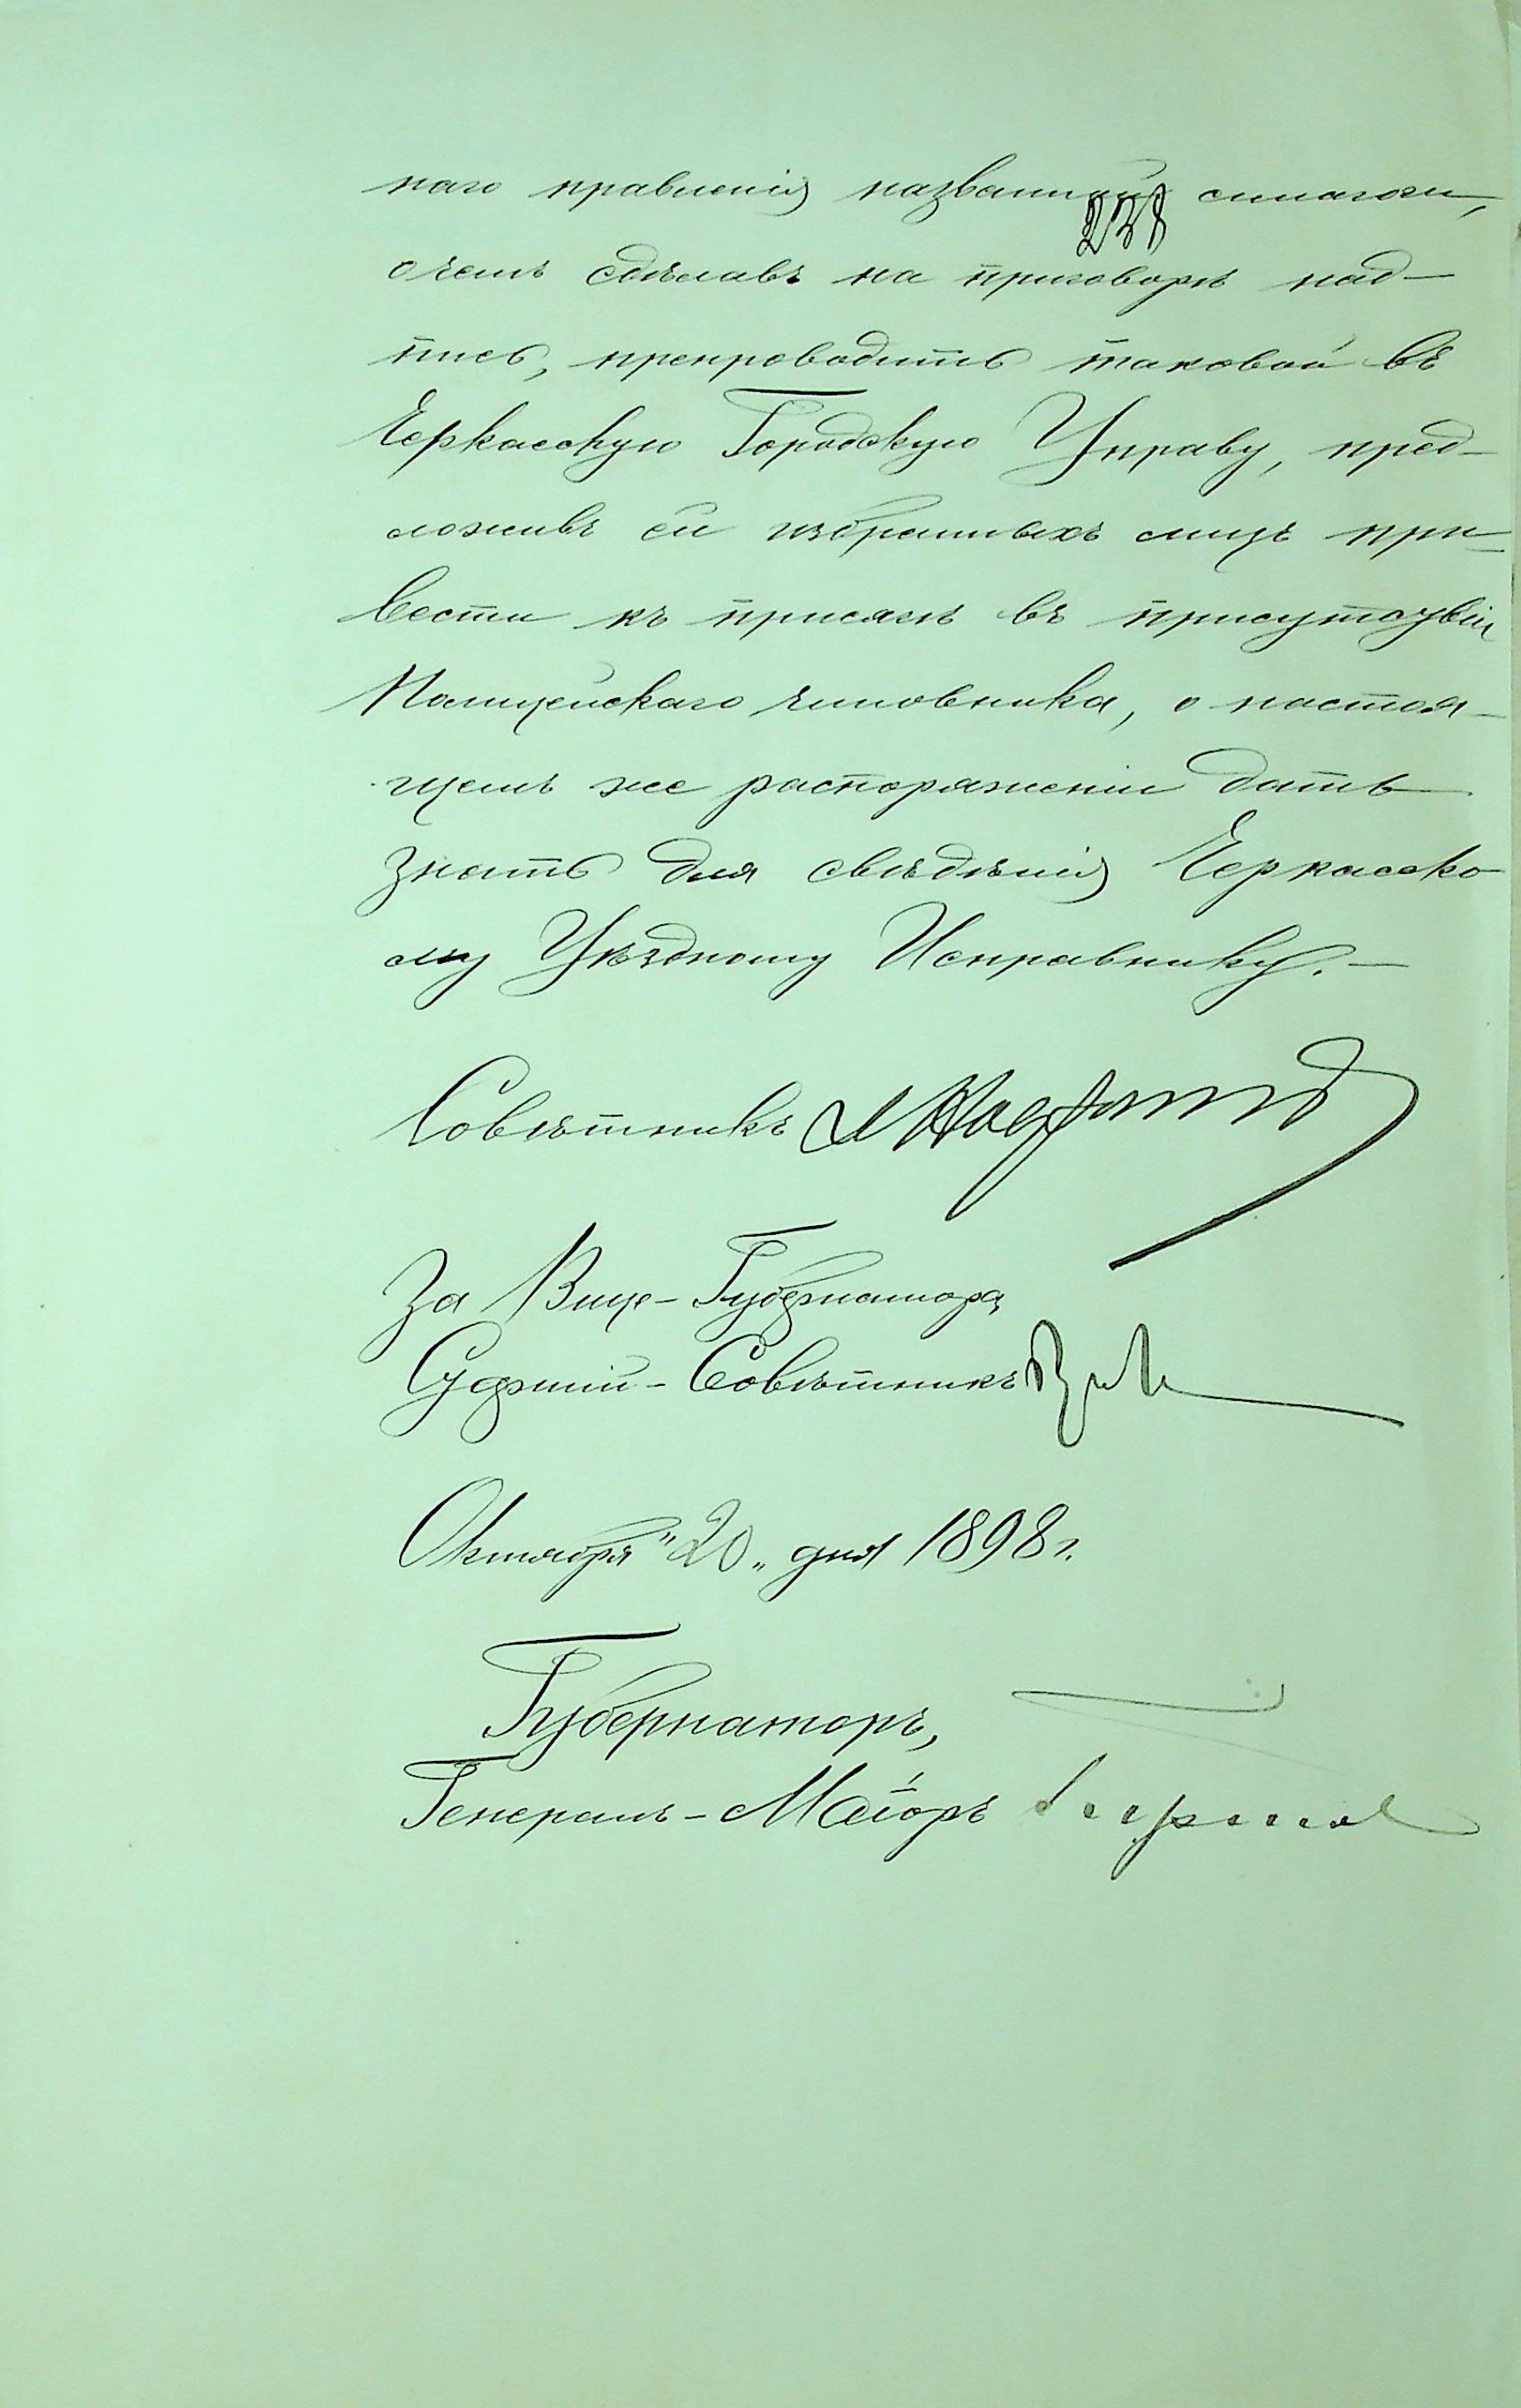 наго правленія названной синагоги,
238
о чемъ сдѣлавъ на приговорѣ над-
пись, препроводить таковой въ
Черкасскую Городскую Управу, пред-
ложивъ ей избранныхъ лицъ при-
вести къ присягѣ въ присутствіи
Полицейскаго чиновника, о настоя-
щемъ же распоряженіи дать
знать для свѣдѣнія Черкасско-
му Уѣздному Исправнику. —
Совѣтникъ
За Вице-Губернатора,
Старшій-Совѣтникъ
Октября "20" дня 1898 г.
Губернаторъ,
Генералъ-Маіоръ